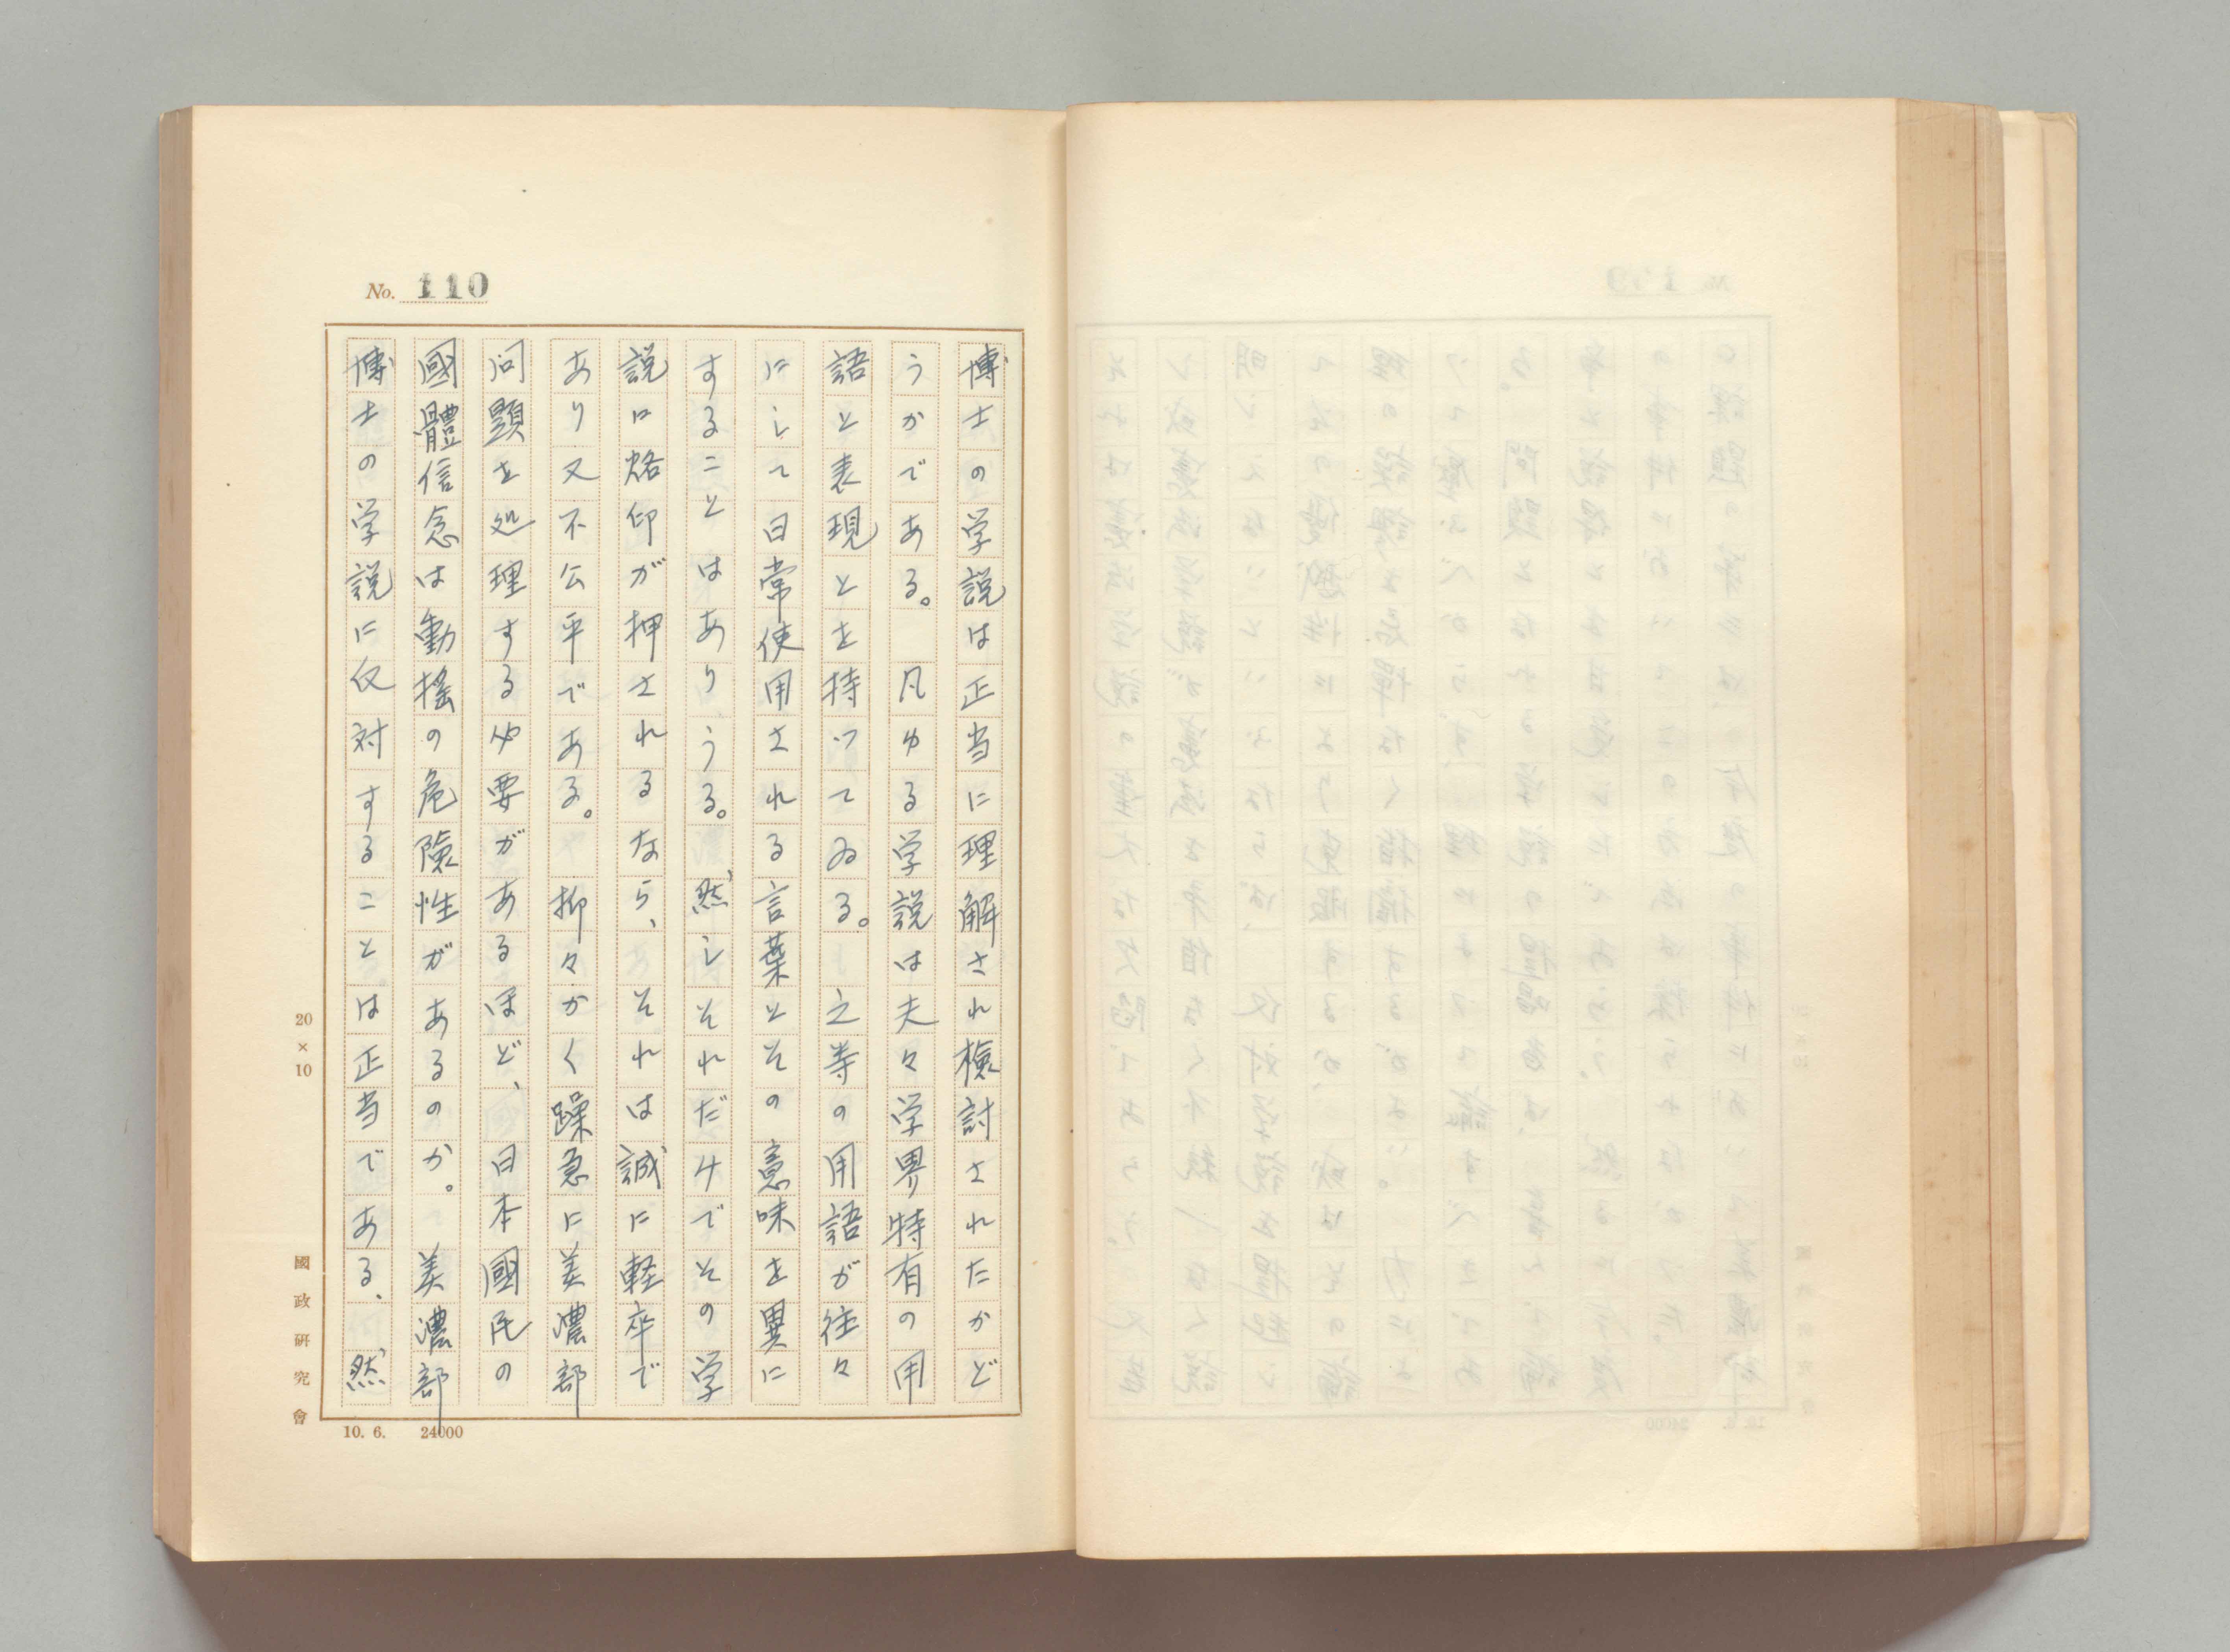 No. 110
博士の学説は正当に理解され檢討されたかど
うかである。　凡ゆる学説は夫々学界特有の用
語と表現とを持つてゐる。　之等の用語が往々
にして日常使用される言葉とその意味を異に
することはありうる。　然しそれだけでその学
説に烙印が押されるなら、それは誠に軽卒で
あり又不公平である。　抑々かく躁急に美濃部
問題を処理する必要があるほど、日本國民の
國體信念は動搖の危險性があるのか。　美濃部
博士の学説に反対することは正当である、　然
20×10
國政研究會
10. 6.　24000